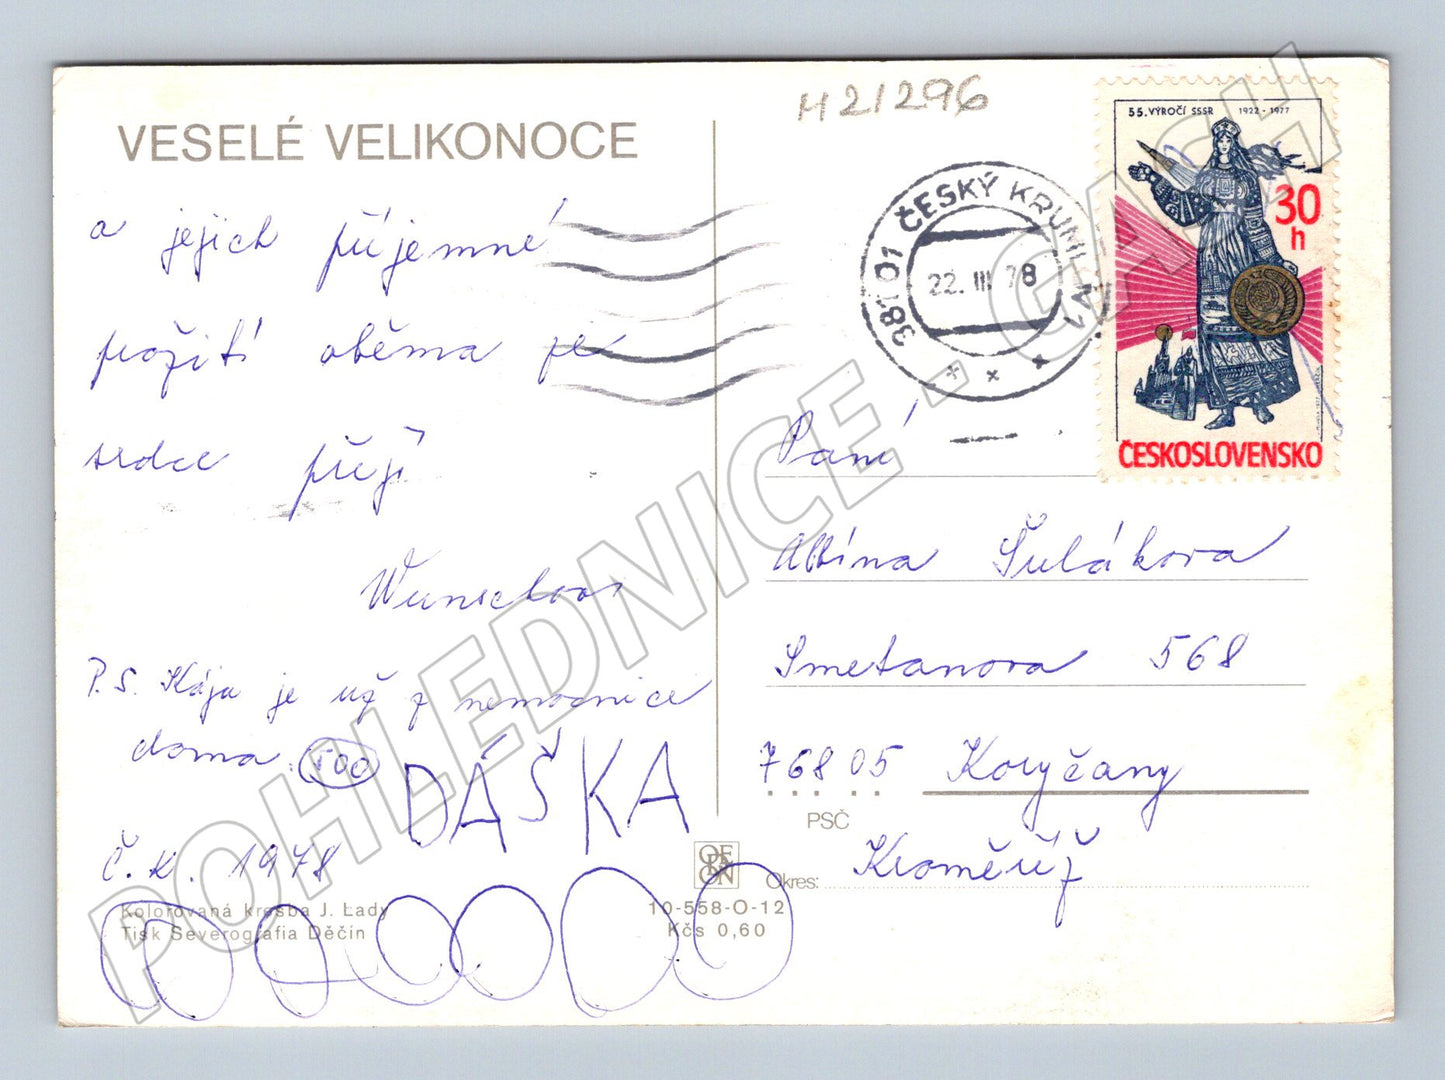 H21296
VESELÉ VELIKONOCE
a jejich příjemné
prožití oběma ze
srdce přejí
Wunschovi
P.S. Kája je už z nemocnice
doma.
DÁŠKA
Č.K. 1978
Kolorovaná kresba J. Lady
Tisk Severografia Děčín
ORBIS
10-558-O-12
Kčs 0,60
381 01 ČESKÝ KRUMLOV 1
22. III. 78
55. VÝROČÍ SSSR 1922-1977
30 h
ČESKOSLOVENSKO
Paní
Albína Šulákova
Smetanova 568
768 05 Koryčany
PSČ
Okres: Kroměříž
POHLEDNICE - GASH